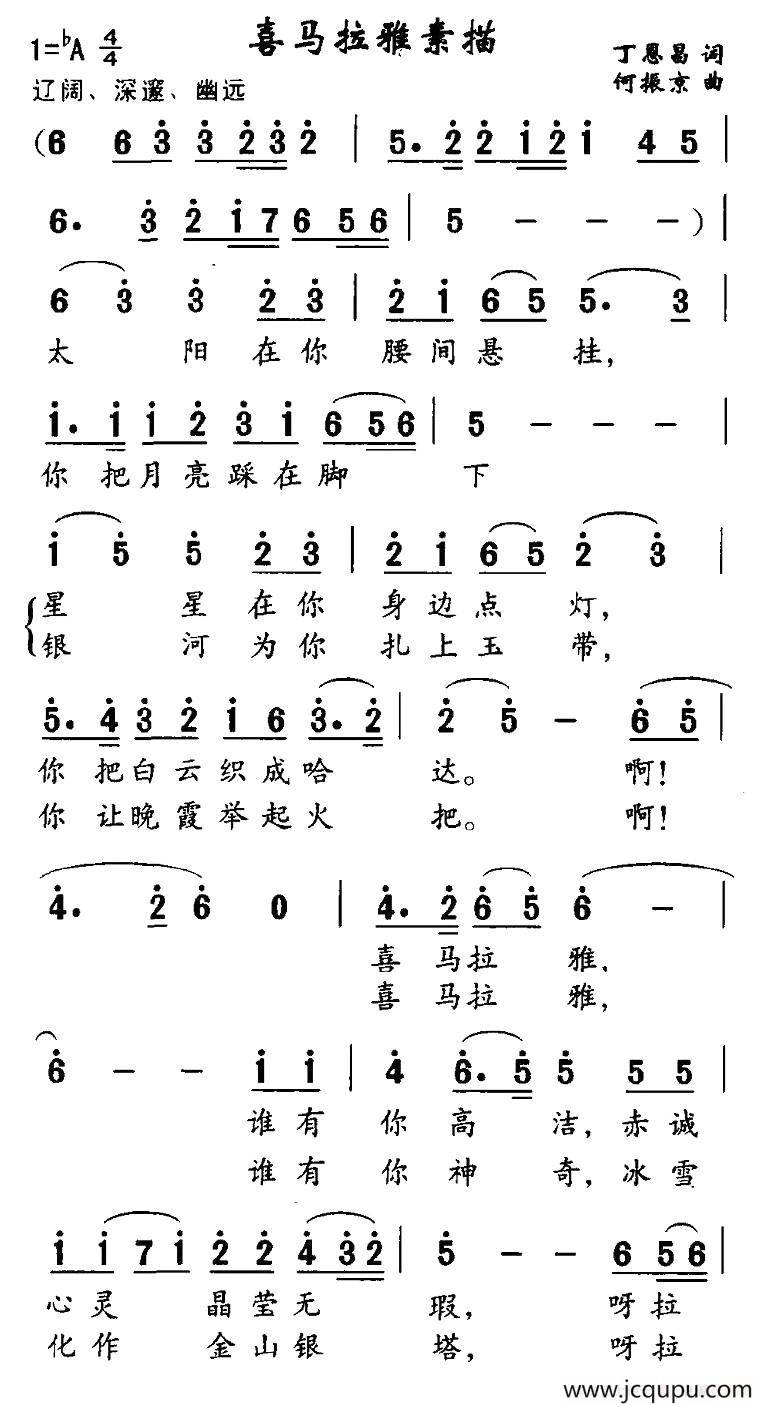 喜马拉雅素描
1=♭A 4/4
丁恩昌 词
何振京 曲
辽阔、深邃、幽远
(6 6 3̇ 3̇ 2̇ 3̇ 2̇ | 5. 2̇ 2̇ 1̇ 2̇ 1̇ 4 5 |
6. 3̇ 2̇ 1̇ 7 6 5 6 | 5 - - -) |
6 3̇ 3̇ 2̇ 3̇ | 2̇ 1̇ 6 5 5. 3̇ |
太 阳 在 你 腰 间 悬 挂,
1̇. 1̇ 1̇ 2̇ 3̇ 1̇ 6 5 6 | 5 - - - |
你 把 月 亮 踩 在 脚 下
1̇ 5̇ 5̇ 2̇ 3̇ | 2̇ 1̇ 6 5 2̇ 3̇ |
星 星 在 你 身 边 点 灯,
银 河 为 你 扎 上 玉 带,
5̇. 4̇ 3̇ 2̇ 1̇ 6 3̇. 2̇ | 2̇ 5̇ - 6̇ 5̇ |
你 把 白 云 织 成 哈 达。 啊!
你 让 晚 霞 举 起 火 把。 啊!
4̇. 2̇ 6̇ 0 | 4̇. 2̇ 6̇ 5̇ 6̇ - |
喜 马 拉 雅,
喜 马 拉 雅,
6̇ - - 1̇ 1̇ | 4̇ 6̇. 5̇ 5̇ 5 5 |
谁 有 你 高 洁, 赤 诚
谁 有 你 神 奇, 冰 雪
1̇ 1̇ 7 1̇ 2̇ 2̇ 4̇ 3̇ 2̇ | 5̇ - - 6 5 6 |
心 灵 晶 莹 无 瑕, 呀 拉
化 作 金 山 银 塔, 呀 拉
www.jcqupu.com